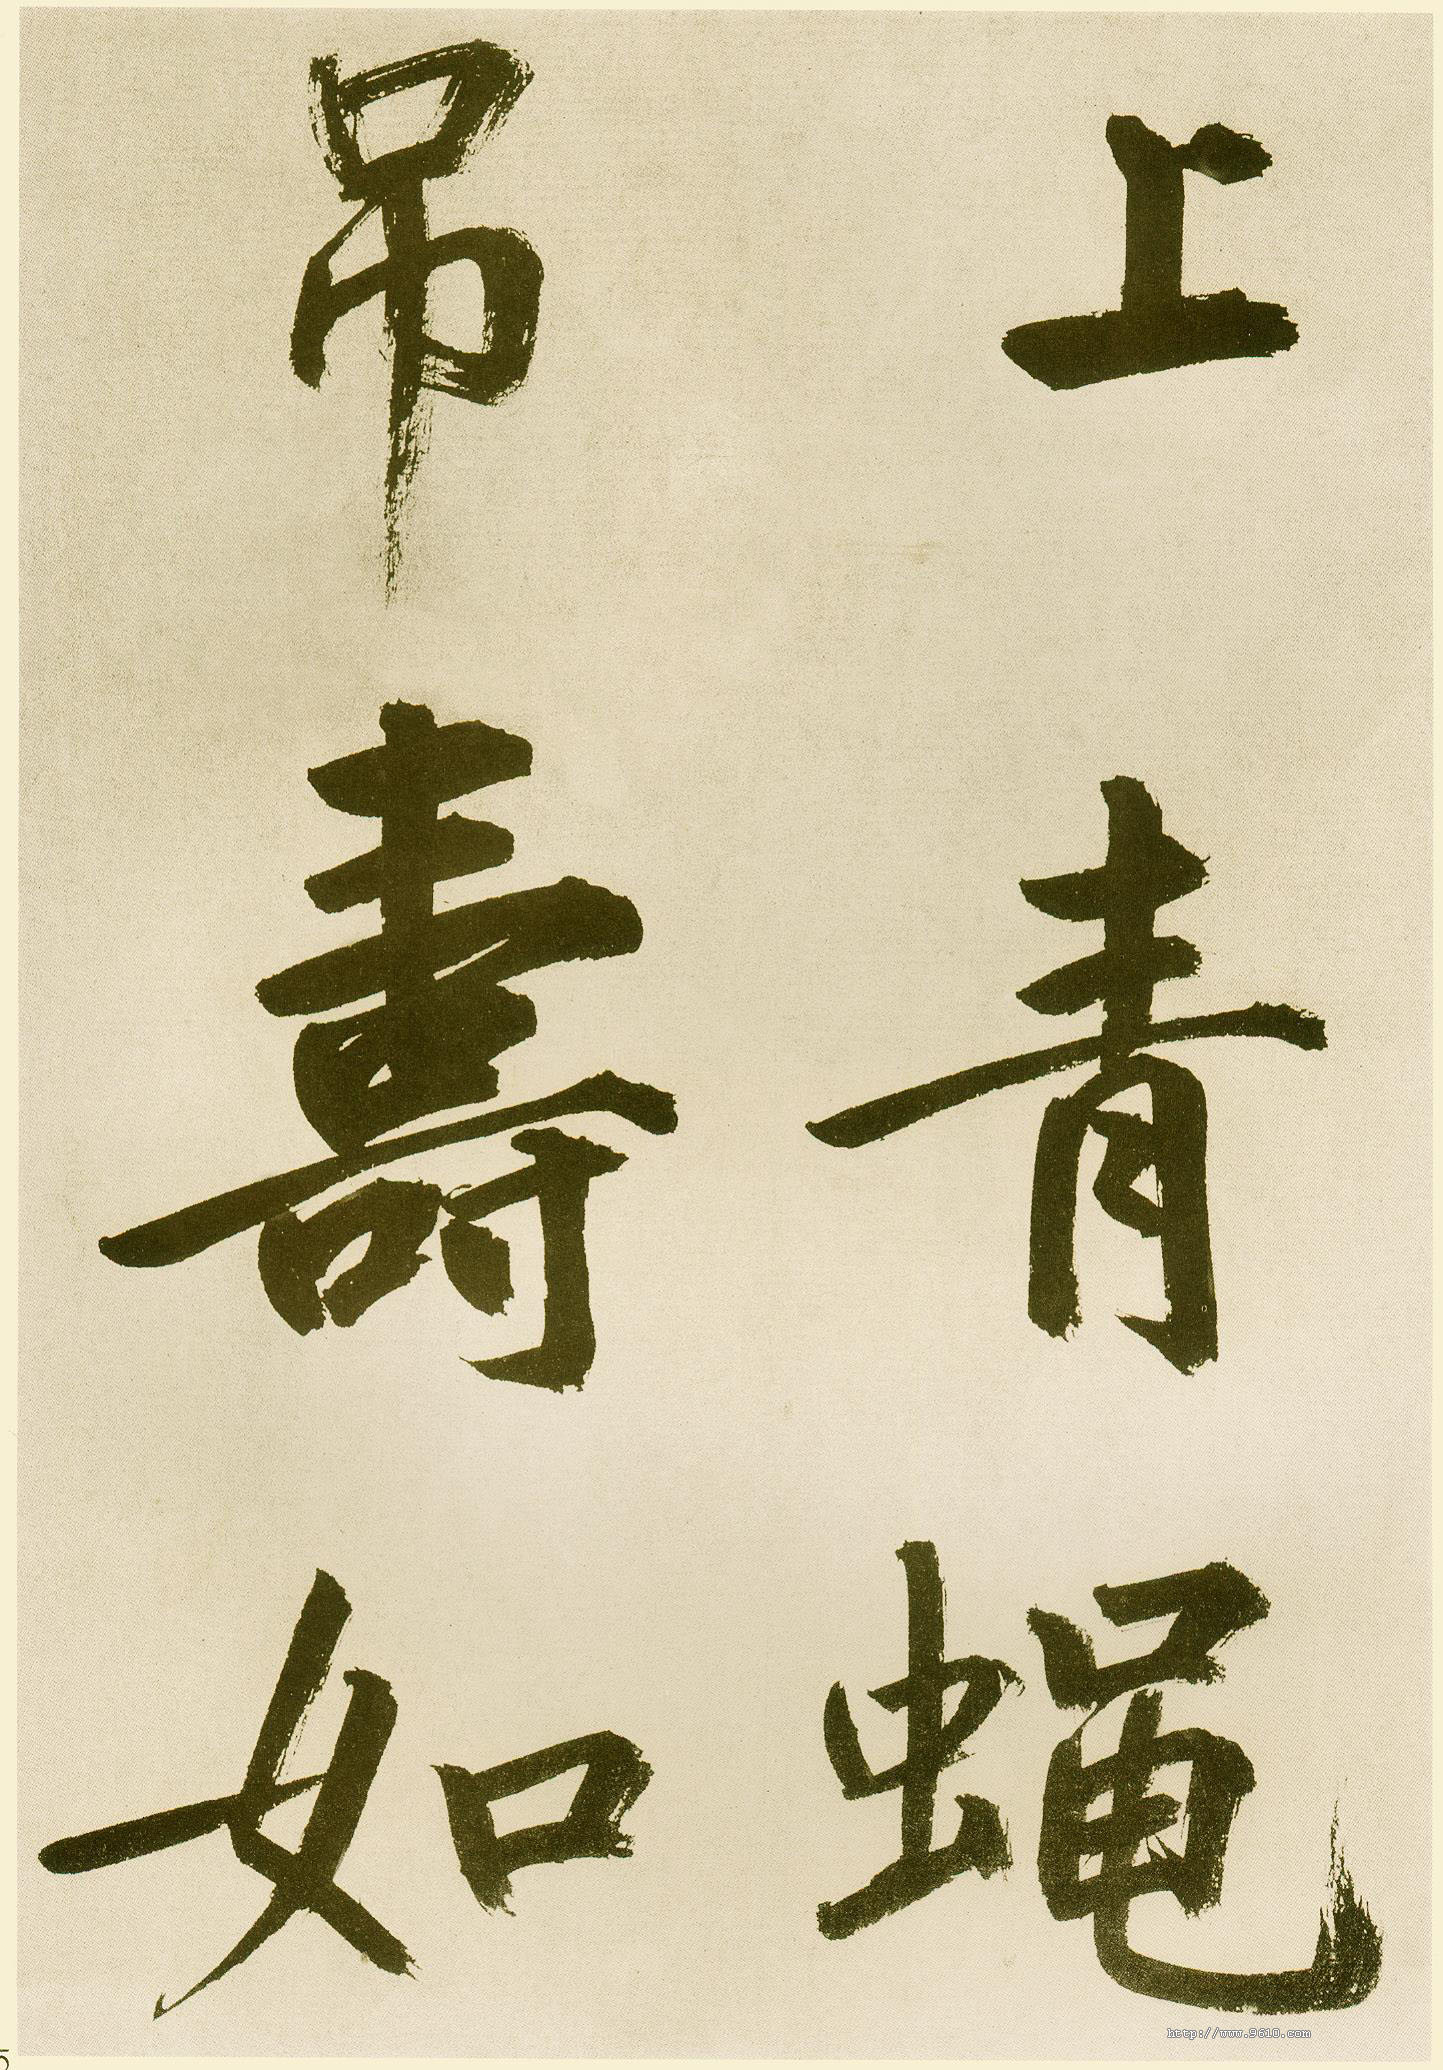 上青蝇
吊壽如
http://www.9610.com
5